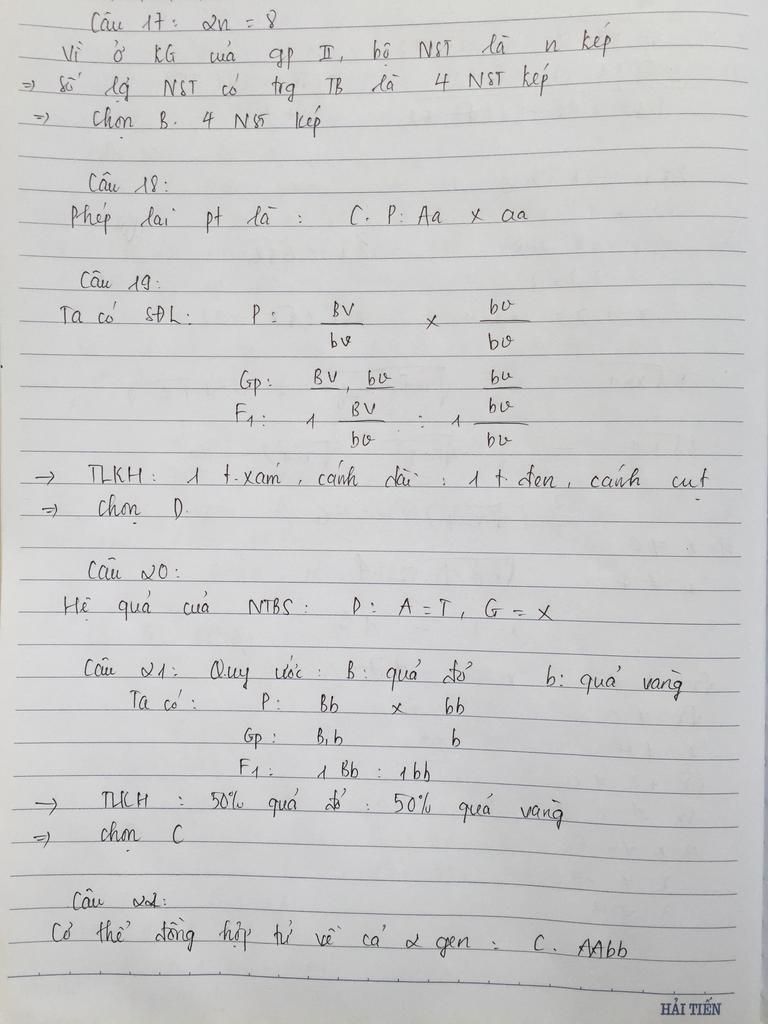 Câu 17: 2n = 8
Vì ở KG của gp II, bộ NST là n kép
=> Số lg NST có trg TB là 4 NST kép
=> Chọn B. 4 NST kép
Câu 18:
Phép lai pt là: C. P: Aa x aa
Câu 19:
Ta có SĐL: P: BV/bv x bv/bv
Gp: BV, bv bv
F1: 1 BV/bv : 1 bv/bv
-> TLKH: 1 t.xám, cánh dài : 1 t.đen, cánh cụt
=> Chọn D.
Câu 20:
Hệ quả của NTBS: D: A = T, G = X
Câu 21: Quy ước: B: quả đỏ b: quả vàng
Ta có: P: Bb x bb
Gp: B, b b
F1: 1 Bb : 1 bb
-> TLKH: 50% quả đỏ : 50% quả vàng
=> Chọn C
Câu 22:
Cơ thể đồng hợp tử về cả 2 gen: C. AAbb
HẢI TIẾN